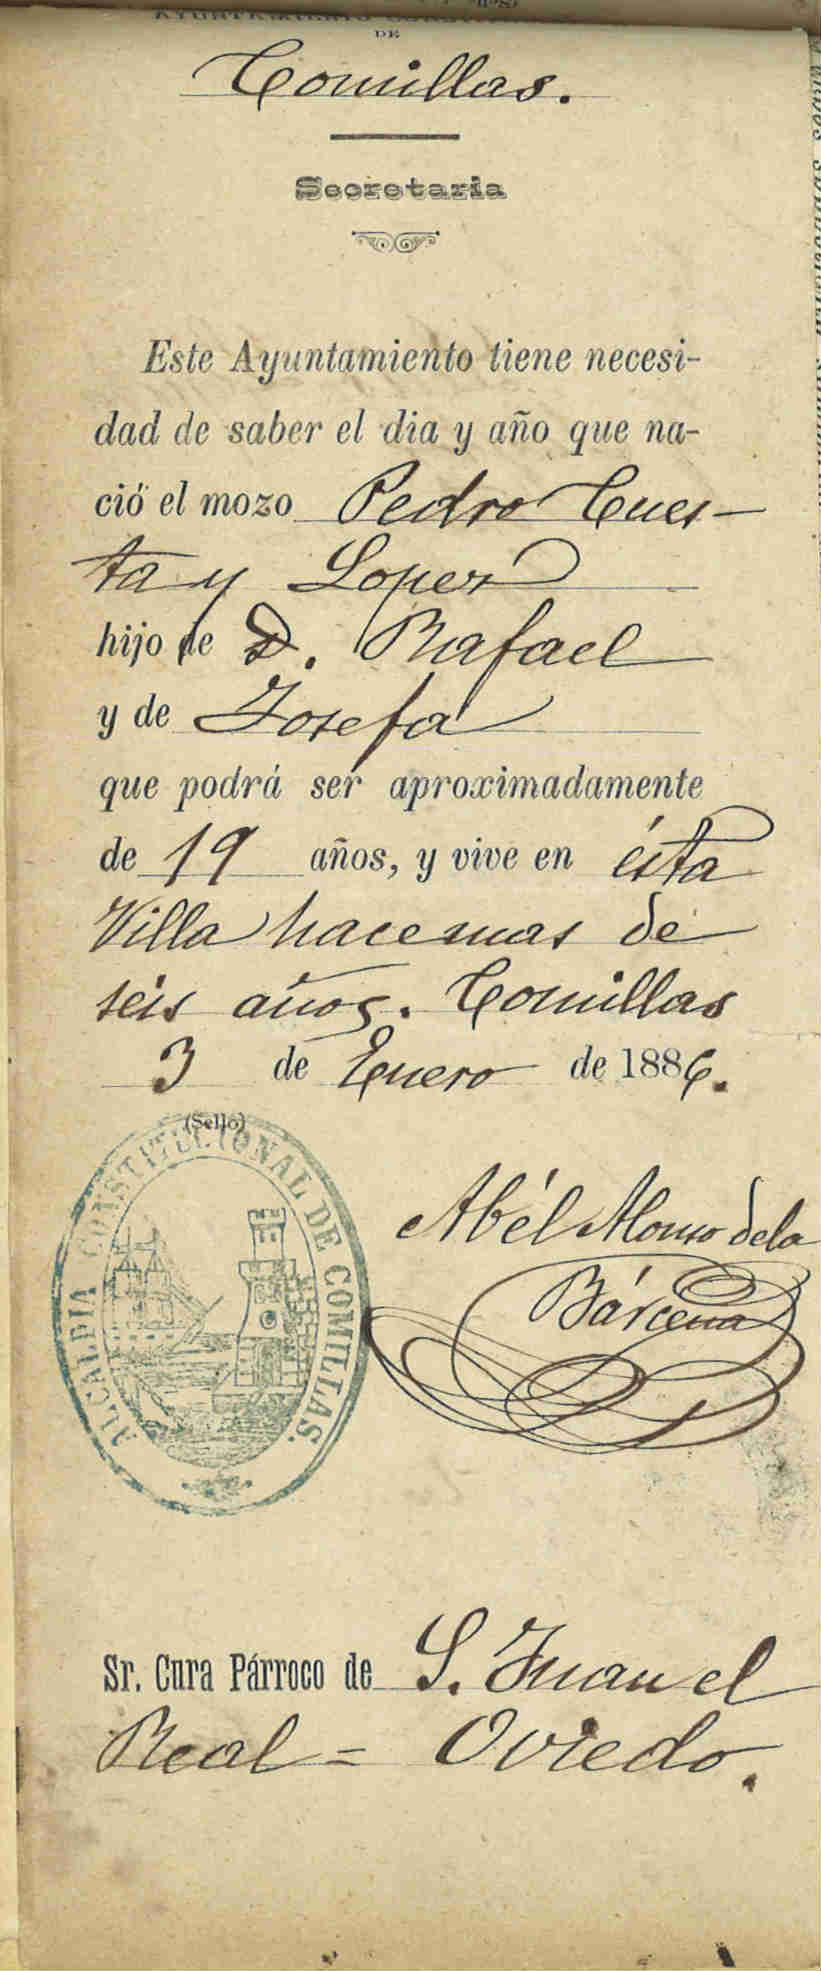 AYUNTAMIENTO CONSTITUCIONAL
DE
Comillas.
Secretaria
Este Ayuntamiento tiene necesi-
dad de saber el dia y año que na-
ció el mozo Pedro Cues-
ta y Lopez
hijo de D. Rafael
y de Josefa
que podrá ser aproximadamente
de 19 años, y vive en ésta
Villa hace mas de
seis años. Comillas
3 de Enero de 1886.
(Sello)
ALCALDIA CONSTITUCIONAL DE COMILLAS.
Abél Alonso de la
Bárcena
Sr. Cura Párroco de S. Juan el
Real = Oviedo.